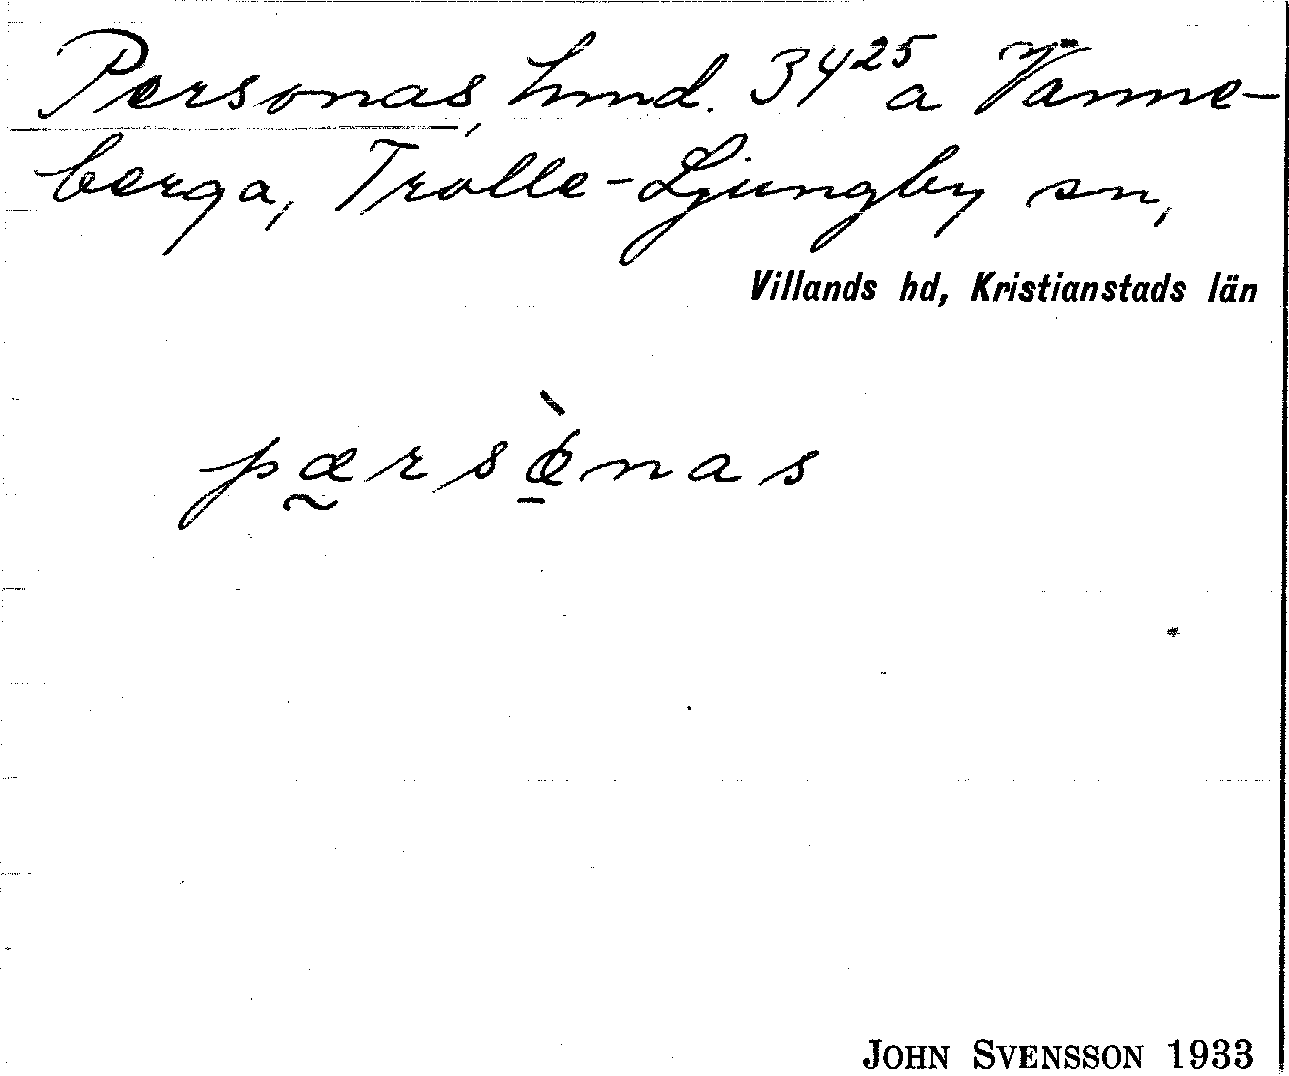 Personas, hmd. 34²⁵ a Vanne-
berga, Trolle-Ljungby sn,
Villands hd, Kristianstads län
pæ̰rsœ̠̀nas
JOHN SVENSSON 1933